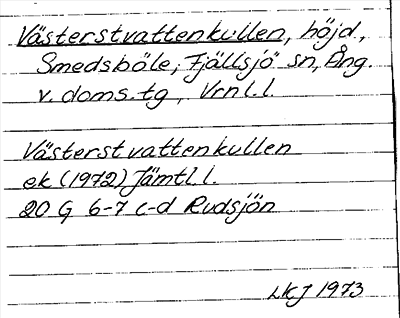 Västerstvattenkullen, höjd,
Smedsböle, Fjällsjö sn, Ång.
v. doms. tg, Vrnl. l.
Västerstvattenkullen
ek (1972) Jämtl. l.
20 G 6-7 c-d Rudsjön
LKJ 1973